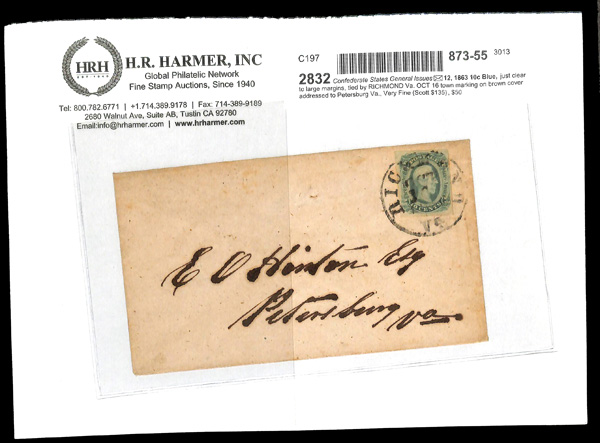 HRH
H.R. HARMER, INC
Global Philatelic Network
Fine Stamp Auctions, Since 1940
Tel: 800.782.6771 | +1.714.389.9178 | Fax: 714-389-9189
2680 Walnut Ave, Suite AB, Tustin CA 92780
Email:info@hrharmer.com www.hrharmer.com
C197 873-55 3013
2832 Confederate States General Issues 12, 1863 10c Blue, just clear
to large margins, tied by RICHMOND Va. OCT 16 town marking on brown cover
addressed to Petersburg Va., Very Fine (Scott $135), $50
RICHMOND
VA
E O Hinton Esq
Petersburg Va